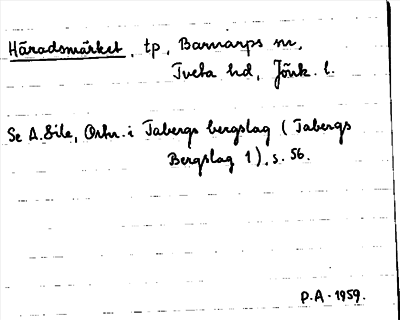 Häradsmärket, tp, Barnarps sn,
Tveta hd, Jönk. l.
Se A. Eile, Ortn. i Tabergs bergslag (Tabergs
Bergslag 1), s. 56.
P.A. 1959.